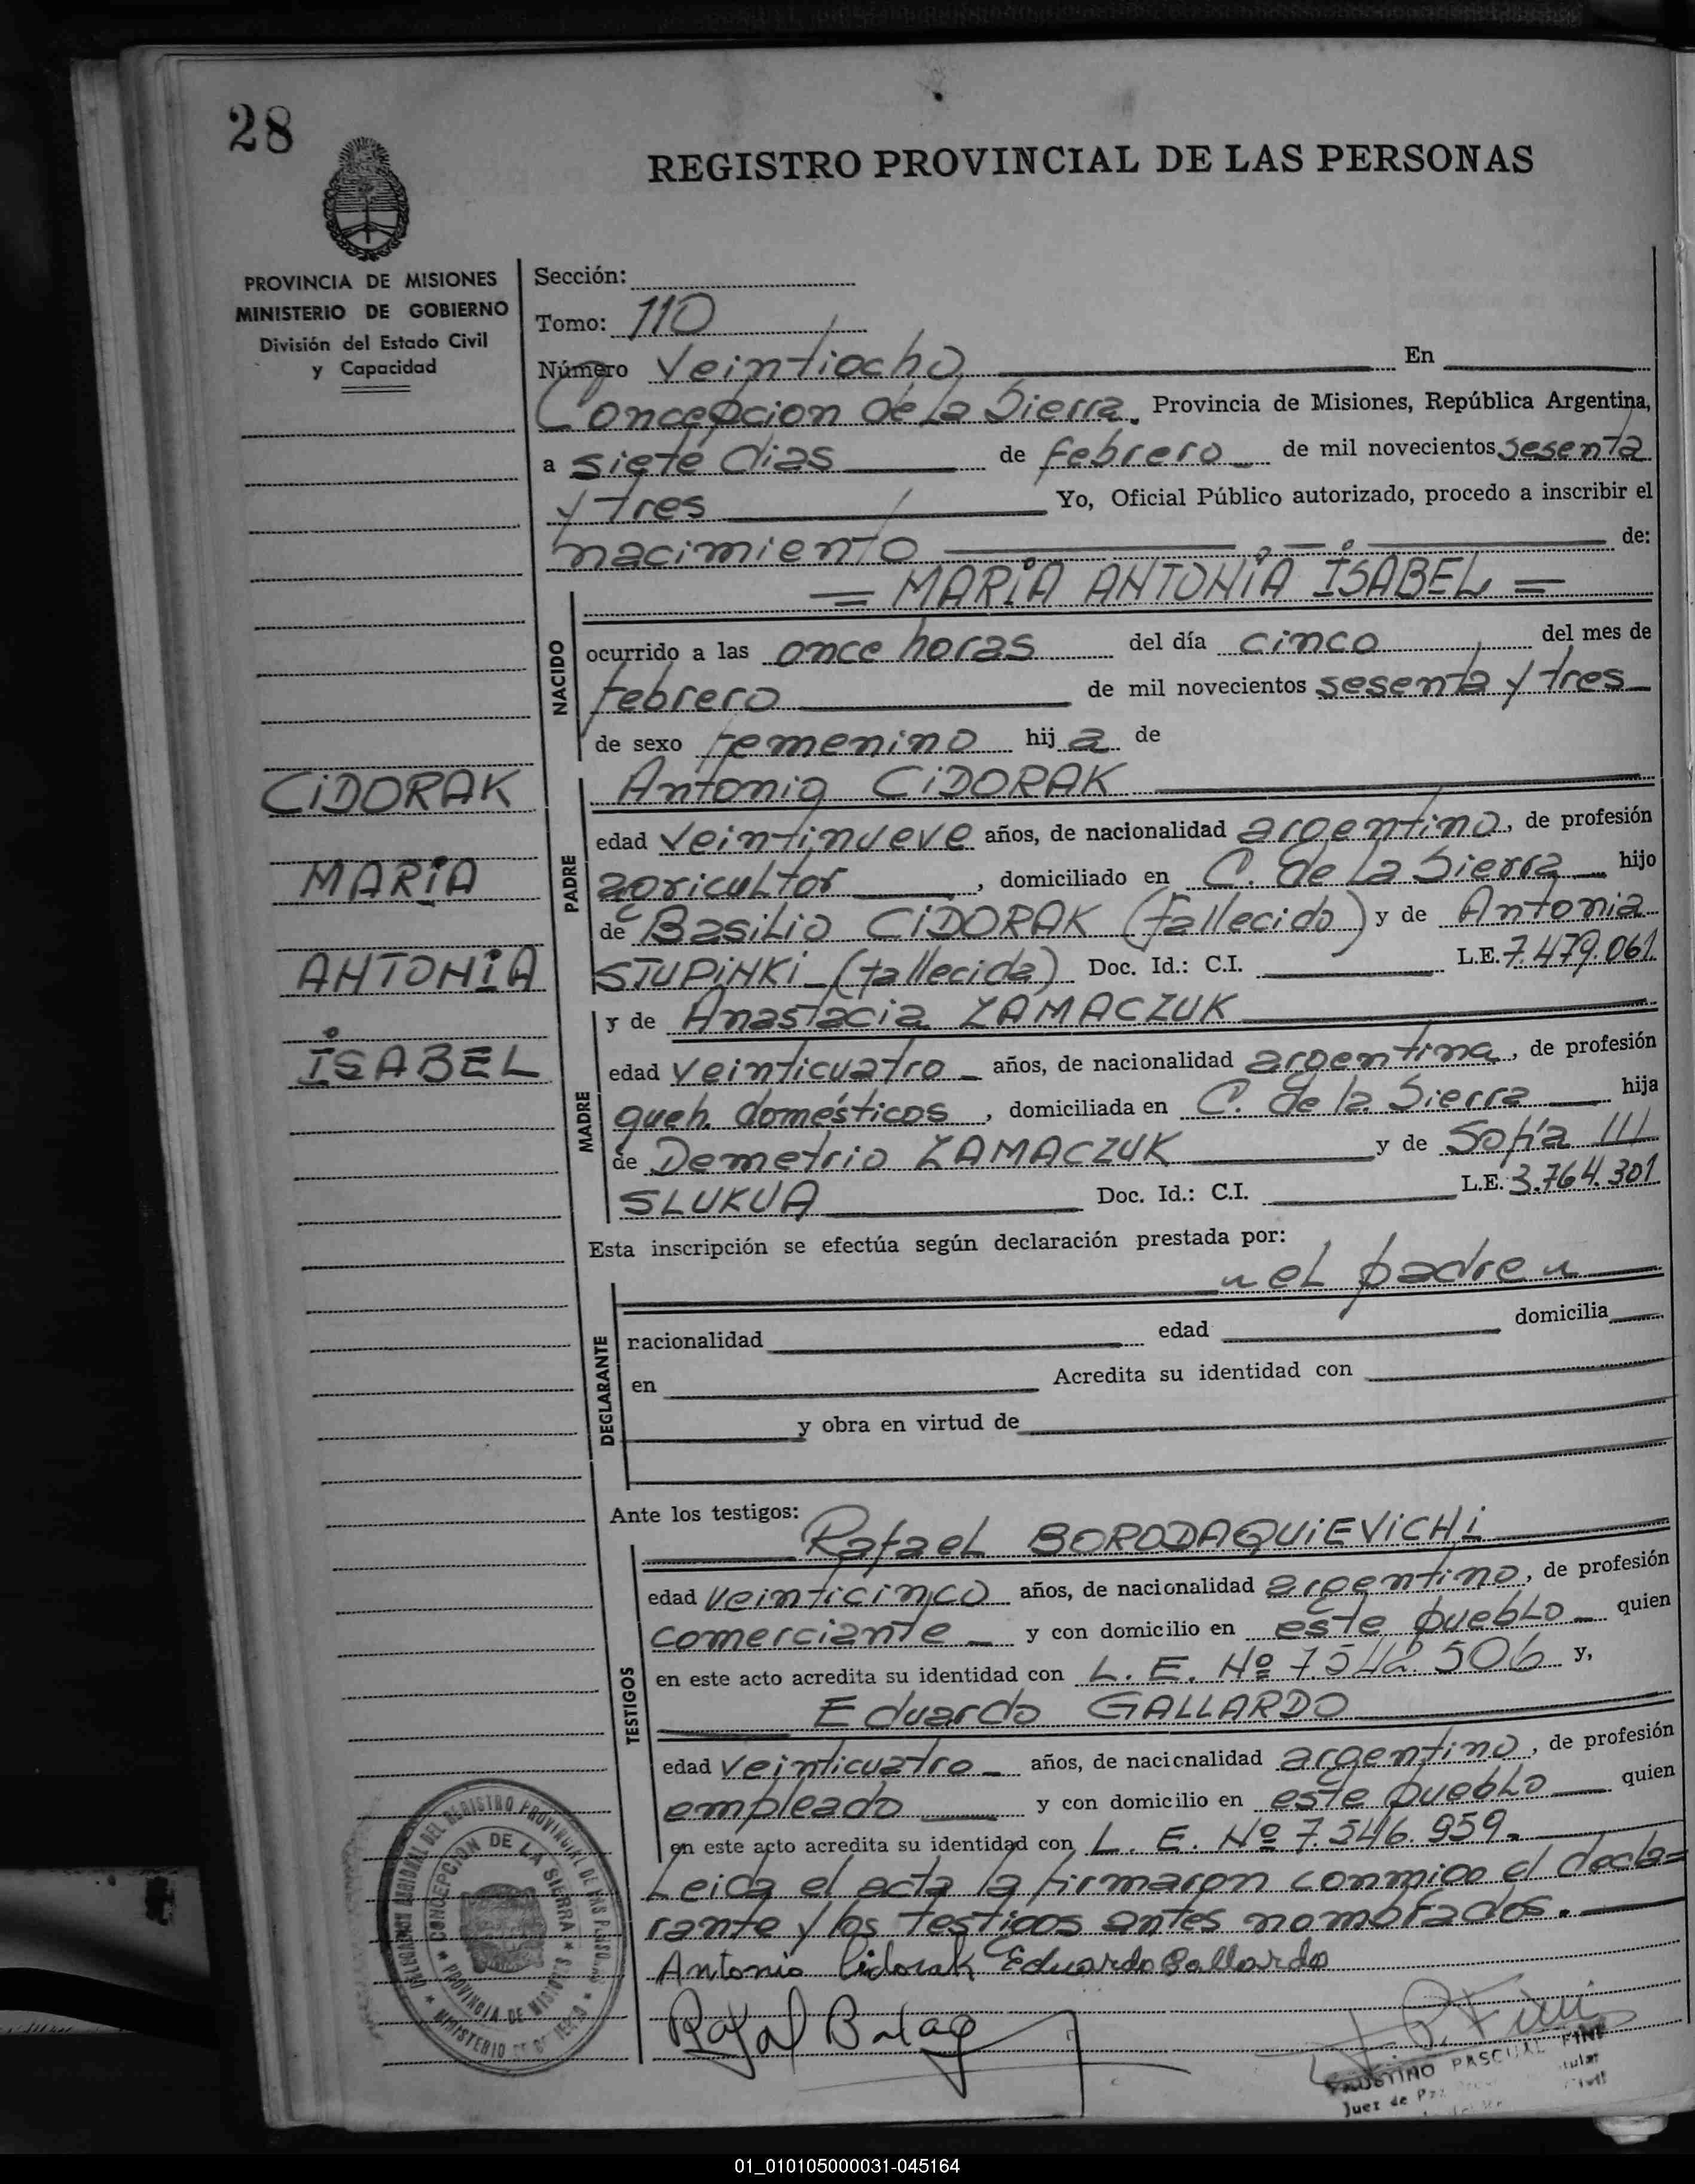 28
REGISTRO PROVINCIAL DE LAS PERSONAS
PROVINCIA DE MISIONES
MINISTERIO DE GOBIERNO
División del Estado Civil
y Capacidad
Sección:
Tomo: 110
Número Veintiocho En
Concepcion de la Sierra. Provincia de Misiones, República Argentina,
a siete dias de febrero de mil novecientos sesenta
y tres Yo, Oficial Público autorizado, procedo a inscribir el
nacimiento de:
= MARiA ANTONiA ISABEL =
NACIDO
ocurrido a las once horas del día cinco del mes de
febrero de mil novecientos sesenta y tres
de sexo femenino hij a de
CiDORAK
MARiA
ANTONiA
ISABEL
PADRE
Antonio CiDORAK
edad veintinueve años, de nacionalidad argentino, de profesión
agricultor, domiciliado en C. de la Sierra hijo
de Basilio CiDORAK (fallecido) y de Antonia
STUPiNKi (fallecida) Doc. Id.: C.I. L.E. 7.479.061
MADRE
y de Anastacia ZAMACZUK
edad veinticuatro años, de nacionalidad argentina, de profesión
queh. domésticos, domiciliada en C. de la Sierra hija
de Demetrio ZAMACZUK y de Sofía
SLUKUA Doc. Id.: C.I. L.E. 3.764.301
Esta inscripción se efectúa según declaración prestada por:
" el padre "
DECLARANTE
nacionalidad edad domicilia
en Acredita su identidad con
y obra en virtud de
Ante los testigos:
TESTIGOS
Rafael BORODAQUiEViCHi
edad veinticinco años, de nacionalidad argentino, de profesión
comerciante y con domicilio en este pueblo quien
en este acto acredita su identidad con L. E. Nº 7.542.506 y,
Eduardo GALLARDO
edad veinticuatro años, de nacionalidad argentino, de profesión
empleado y con domicilio en este pueblo quien
en este acto acredita su identidad con L. E. Nº 7.546.959.
Leida el acta la firmaron conmigo el decla=
rante y los testigos antes nombrados.
Antonio Cidorak Eduardo Gallardo
DELEGACION REGIONAL DEL REGISTRO PROVINCIAL DE LAS PERSONAS
CONCEPCION DE LA SIERRA
PROVINCIA DE MISIONES
MINISTERIO DE GOBIERNO
FAUSTINO PASCUAL FINI
Juez de Paz
01_010105000031-045164